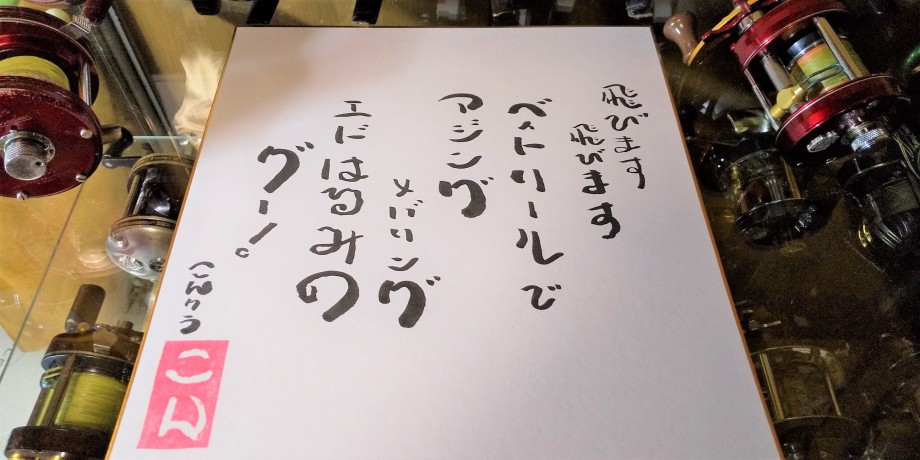 飛びます
飛びます
ベイトリールで
アジング
メバリング
エドはるみの
グー!
こん